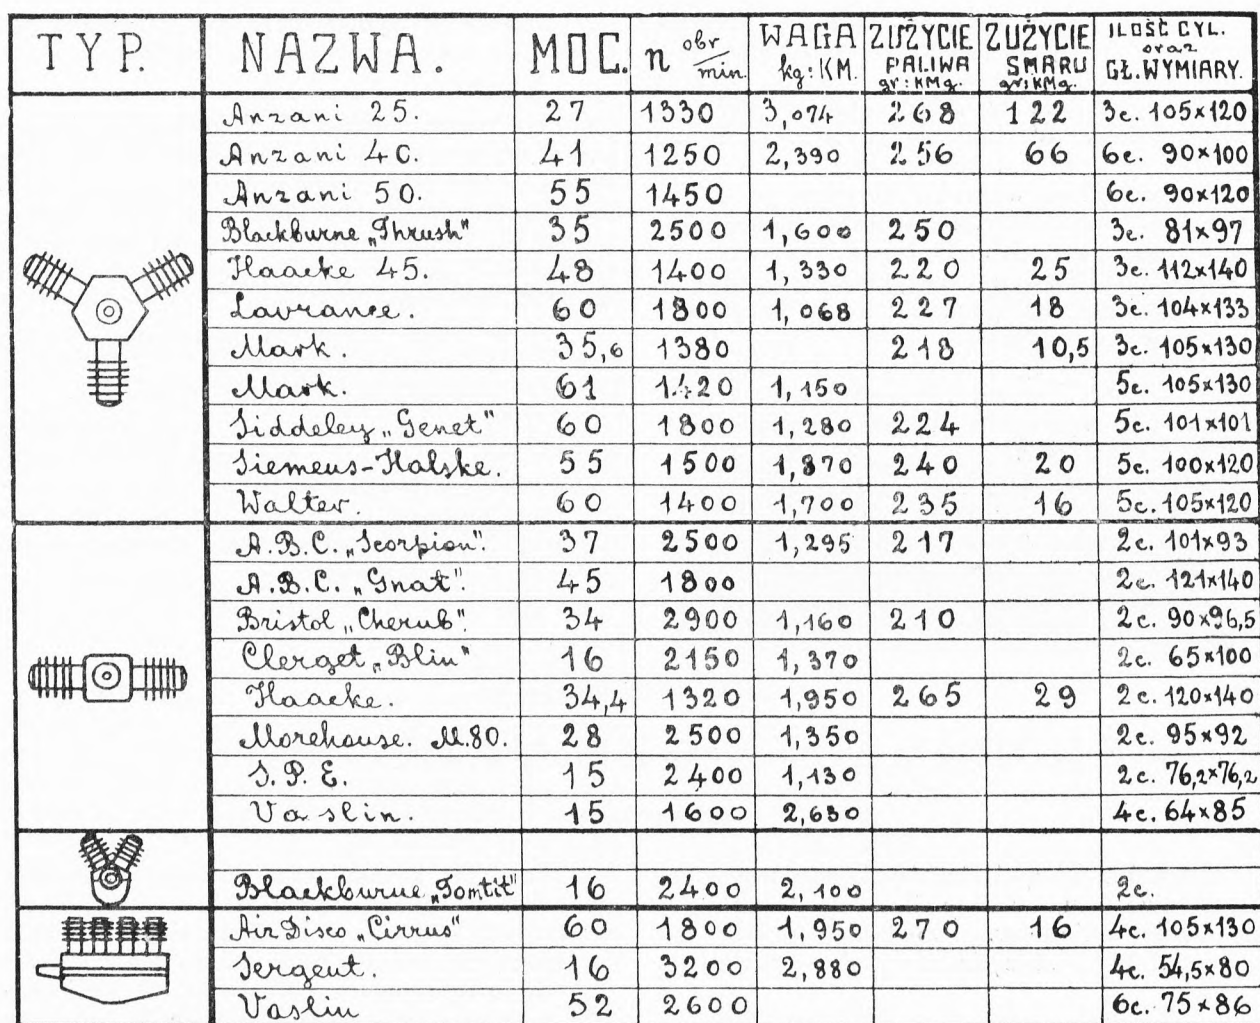 TYP. NAZWA. MOC. n obr/min. WAGA kg:KM. ZUŻYCIE PALIWA gr:KMg. ZUŻYCIE SMARU gr:KMg. ILOŚĆ CYL. oraz GŁ. WYMIARY.
Anzani 25. 27 1330 3,074 268 122 3c. 105×120
Anzani 40. 41 1250 2,390 256 66 6c. 90×100
Anzani 50. 55 1450 6c. 90×120
Blackburne „Thrush" 35 2500 1,600 250 3c. 81×97
Haacke 45. 48 1400 1,330 220 25 3c. 112×140
Lavrance. 60 1800 1,068 227 18 3c. 104×133
Mark. 35,6 1380 218 10,5 3c. 105×130
Mark. 61 1420 1,150 5c. 105×130
Siddeley „Genet" 60 1800 1,280 224 5c. 101×101
Siemens-Halske. 55 1500 1,870 240 20 5c. 100×120
Walter. 60 1400 1,700 235 16 5c. 105×120
A.B.C. „Scorpion". 37 2500 1,295 217 2c. 101×93
A.B.C. „Gnat". 45 1800 2c. 121×140
Bristol „Cherub". 34 2900 1,160 210 2c. 90×96,5
Clerget „Blin" 16 2150 1,370 2c. 65×100
Haacke. 34,4 1320 1,950 265 29 2c. 120×140
Morehouse. M.80. 28 2500 1,350 2c. 95×92
S.P.E. 15 2400 1,130 2c. 76,2×76,2
Vaslin. 15 1600 2,630 4c. 64×85
Blackburne „Tomtit" 16 2400 2,100 2c.
Air Disco „Cirrus" 60 1800 1,950 270 16 4c. 105×130
Sergent. 16 3200 2,880 4c. 54,5×80
Vaslin 52 2600 6c. 75×86